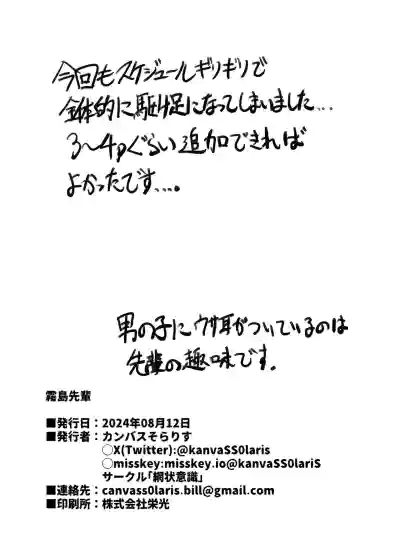 今回もスケジュールギリギリで
全体的に駆け足になってしまいました...
3〜4pぐらい追加できれば
よかったです....。
男の子にウサ耳がついているのは
先輩の趣味です.
霧島先輩
■発行日：2024年08月12日
■発行者：カンバスそらりす
○X(Twitter):@kanvaSS0laris
○misskey:misskey.io@kanvaSS0lariS
サークル｢網状意識｣
■連絡先：canvass0laris.bill@gmail.com
■印刷所：株式会社栄光